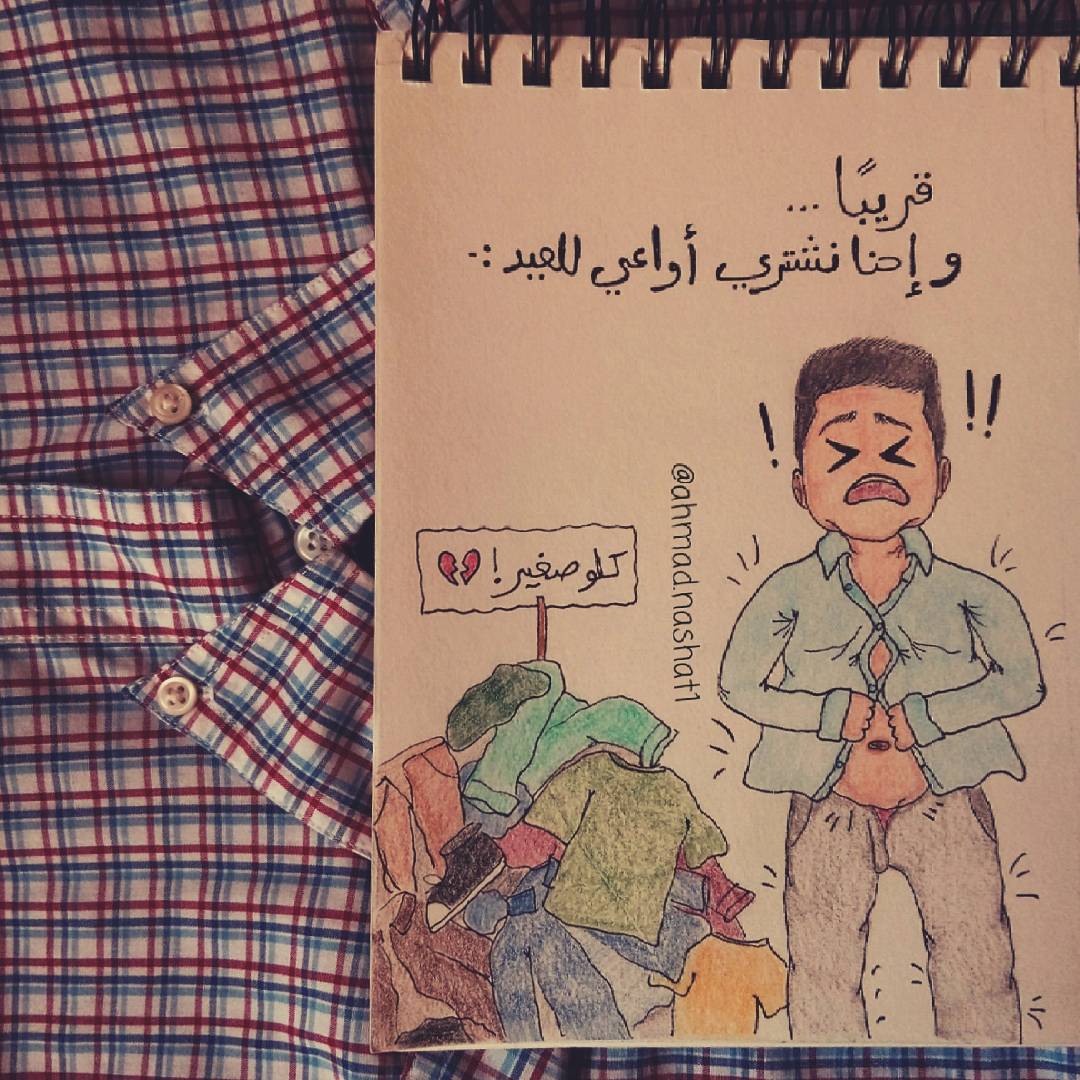 قريبًا ...
و إحنا نشتري أواعي للعيد :-
! !!
@ahmad.nashat1
كلو صغير ! 💔